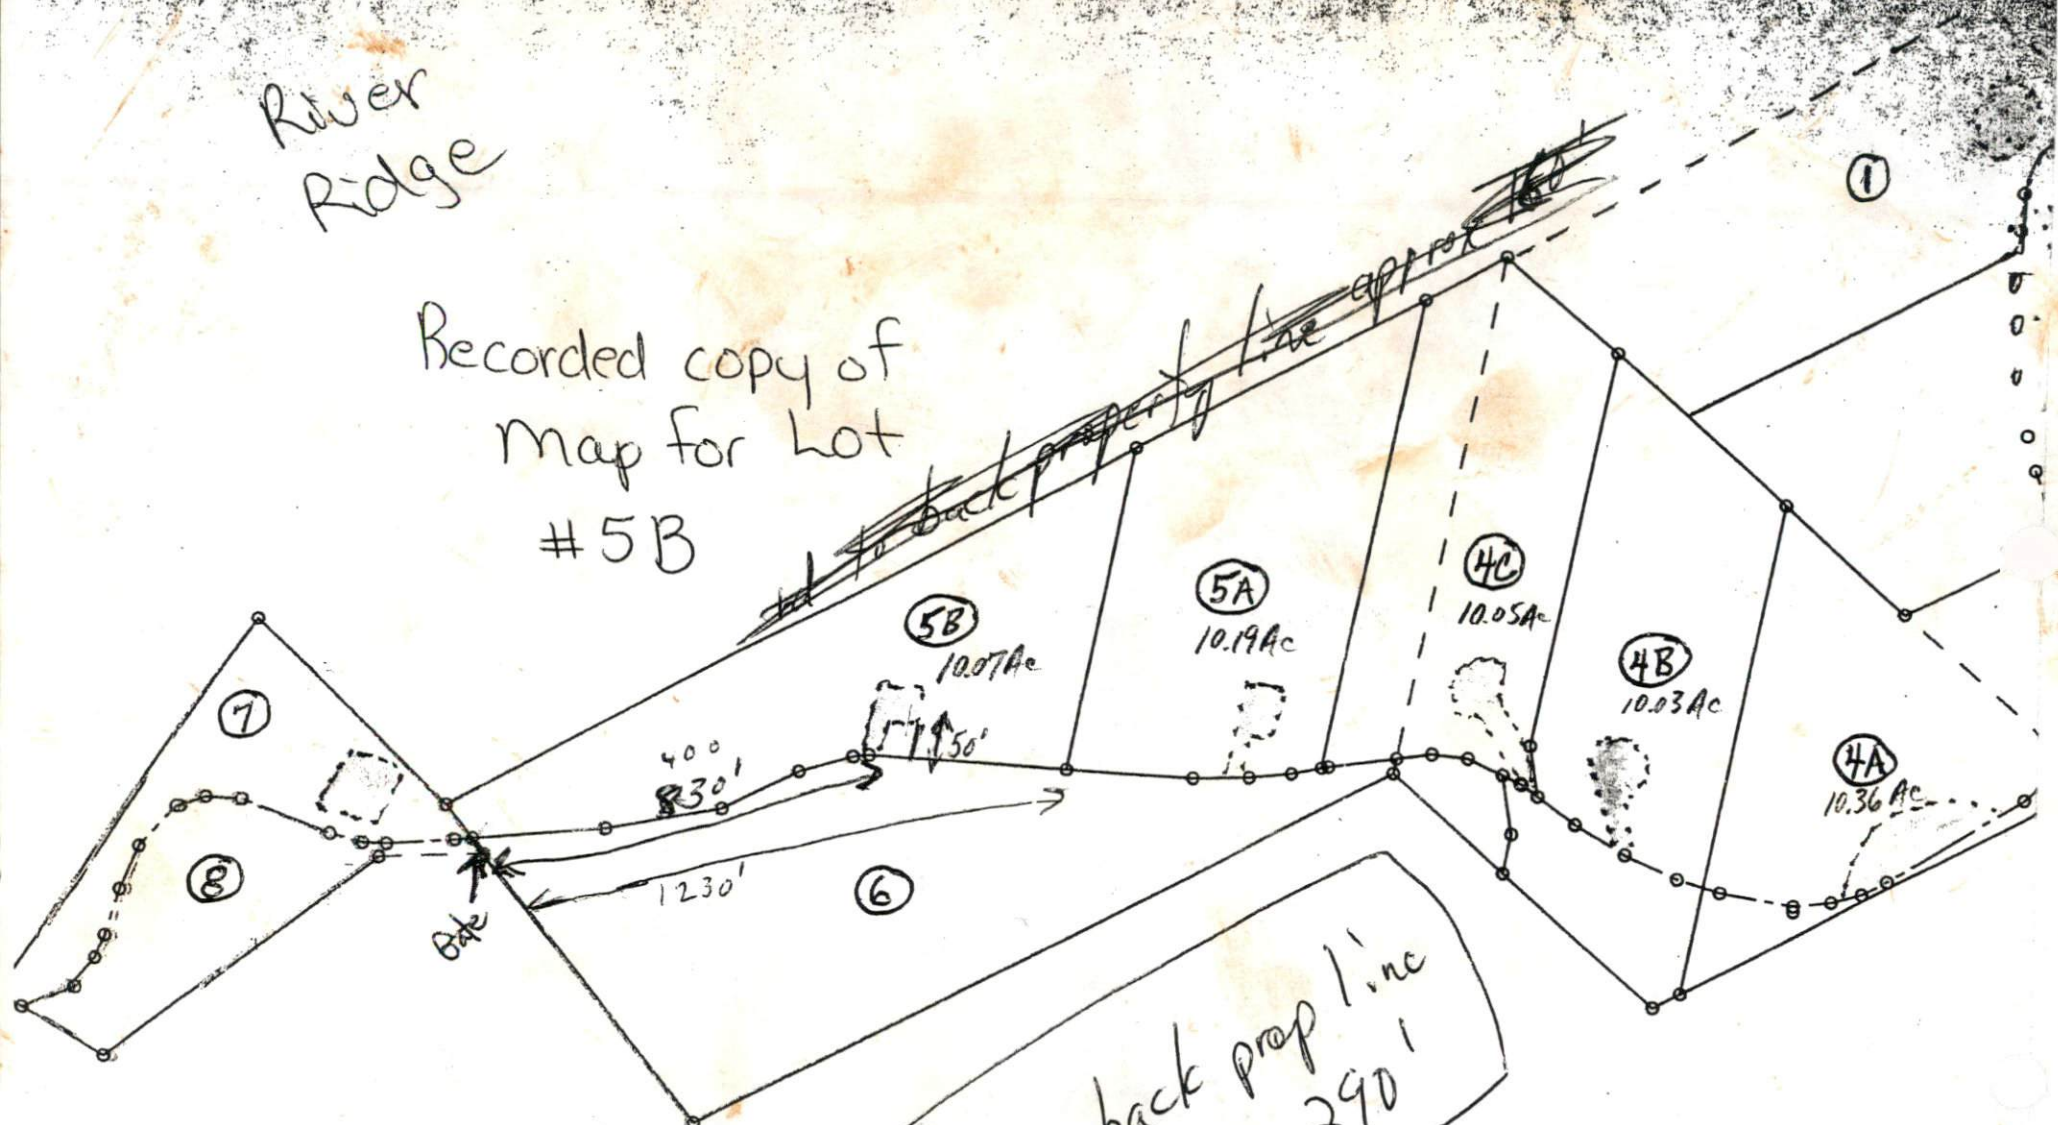 River
Ridge
Recorded copy of
Map for Lot
#5B
back property line approx
1
7
8
5B
10.07Ac
5A
10.19Ac
4C
10.05Ac
4B
10.03Ac
4A
10.36 Ac
50'
400
830'
1230'
6
back prop line
290'